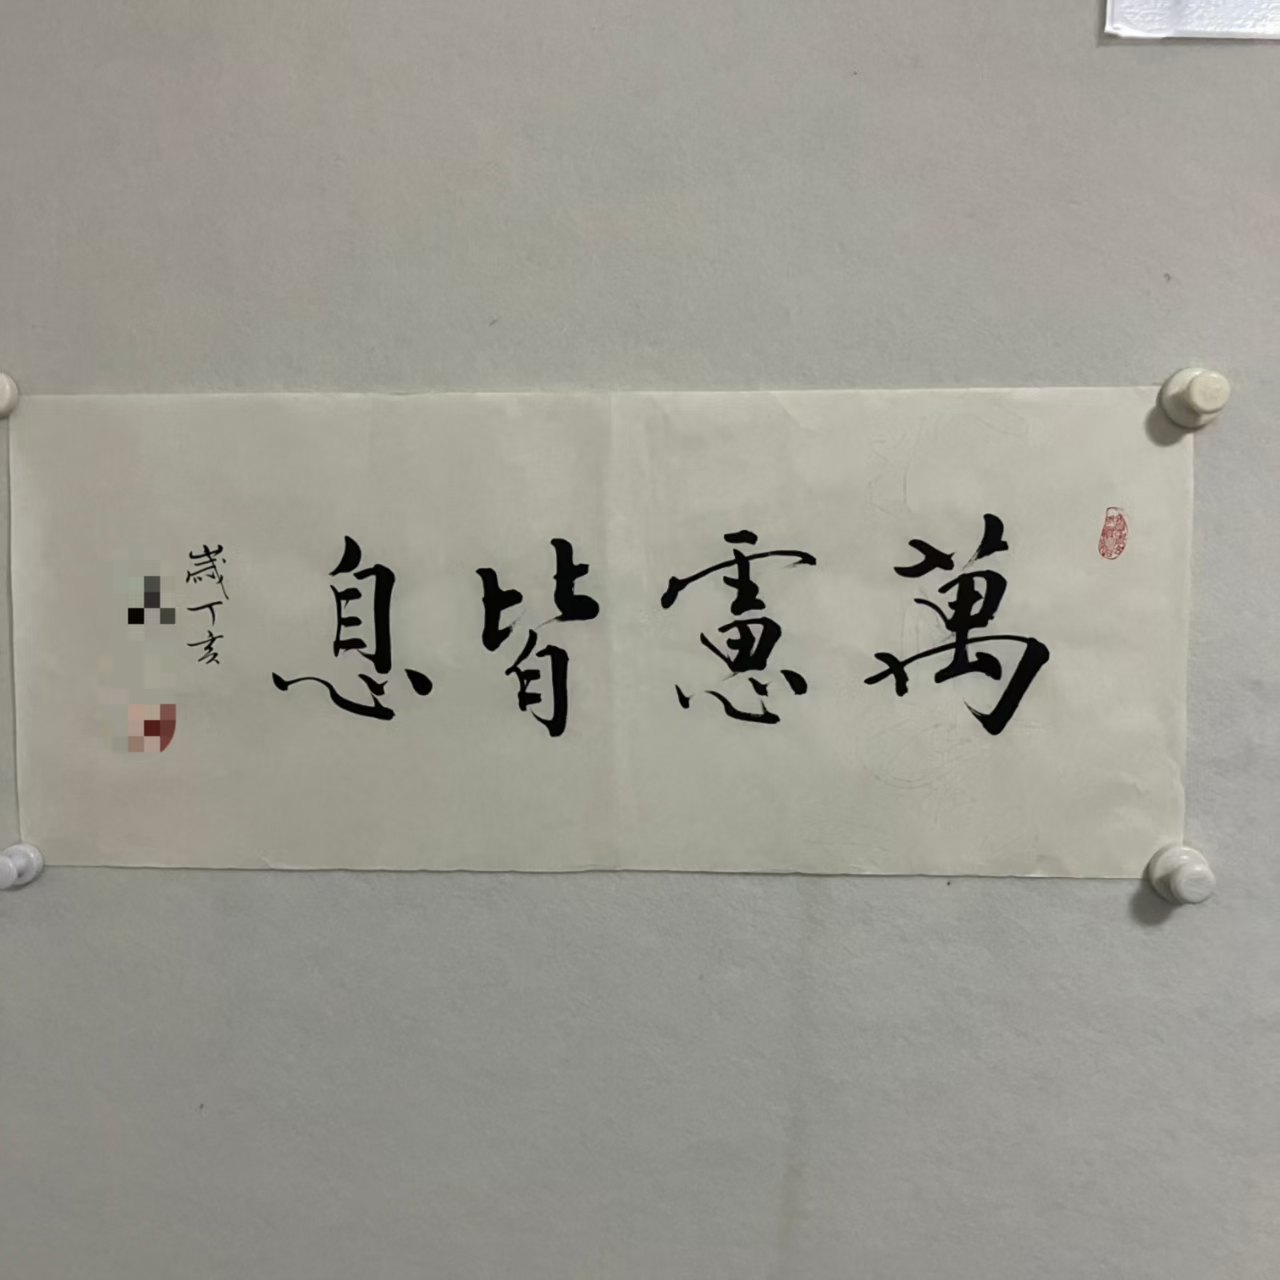 萬慮皆息
歲丁亥